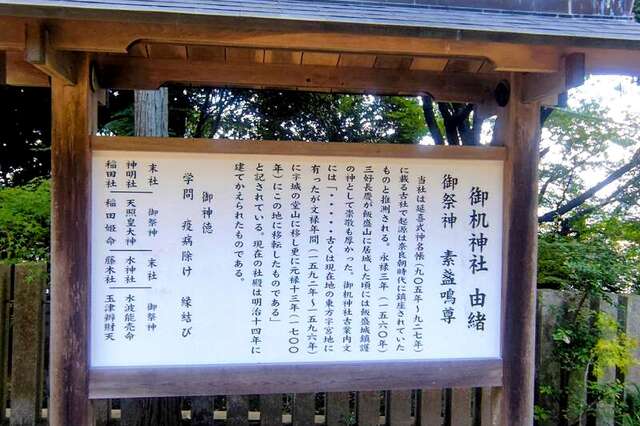 御机神社 由緒
御祭神 素盞嗚尊
当社は延喜式神名帳(九〇五年～九二七年)
に載る古社で起源は奈良朝時代に鎮座されていた
ものと推測される。永禄三年(一五六〇年)
三好長慶が飯盛山に居城した頃には飯盛城鎮護
の神として崇敬も厚かった。御机神社古案内文
には「・・・・・古くは現在地の東方字宮地に
有ったが文禄年間(一五九二年～一五九六年)
に字城の堂山に移し更に元禄十三年(一七〇〇
年)にこの地に移転したものである」
と記されている。現在の社殿は明治十四年に
建てかえられたものである。
御神徳
学問 疫病除け 縁結び
末社 御祭神 末社 御祭神
神明社 天照皇大神 水神社 水波能売命
稲田社 稲田姫命 藤木社 玉津辨財天